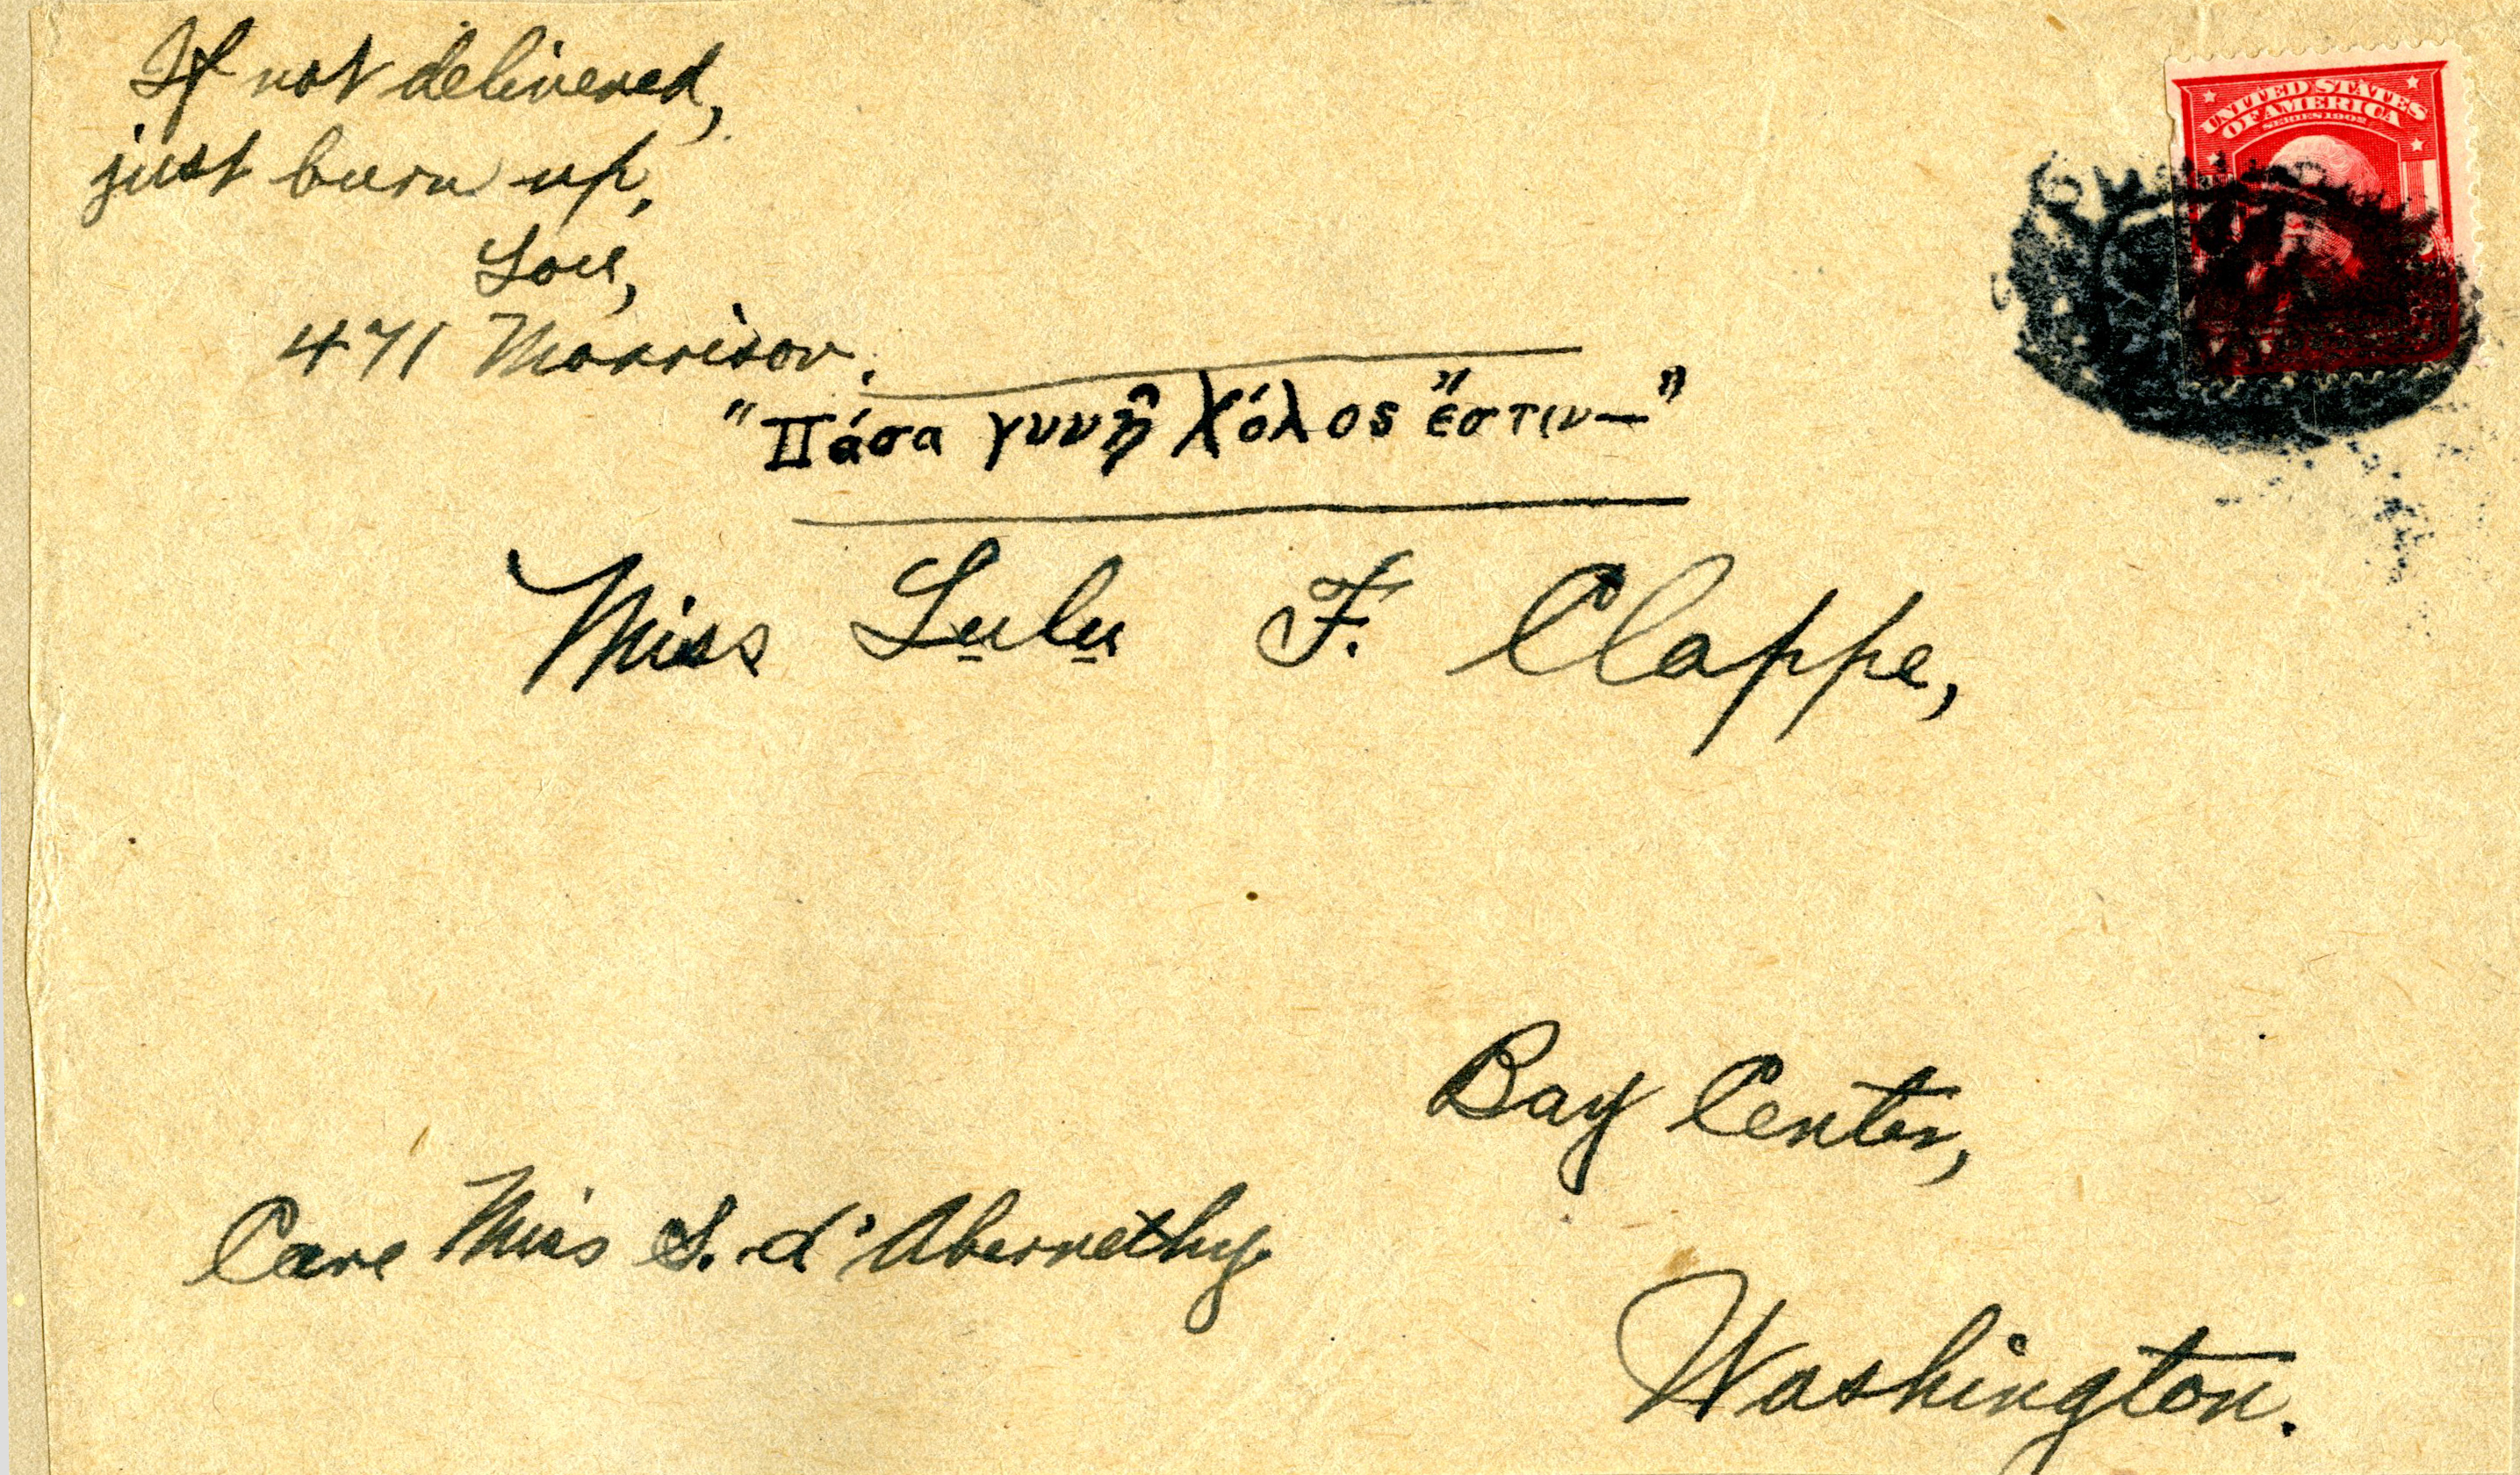 If not delivered,
just burn up,
Lou,
471 Morrison.
"Πάσα γυνὴ Χόλος ἔστιν—"
Miss Lulu F. Clappe,
Bay Center,
Care Miss S. d'Abernethy.
Washington.
UNITED STATES
OF AMERICA
SERIES 1902